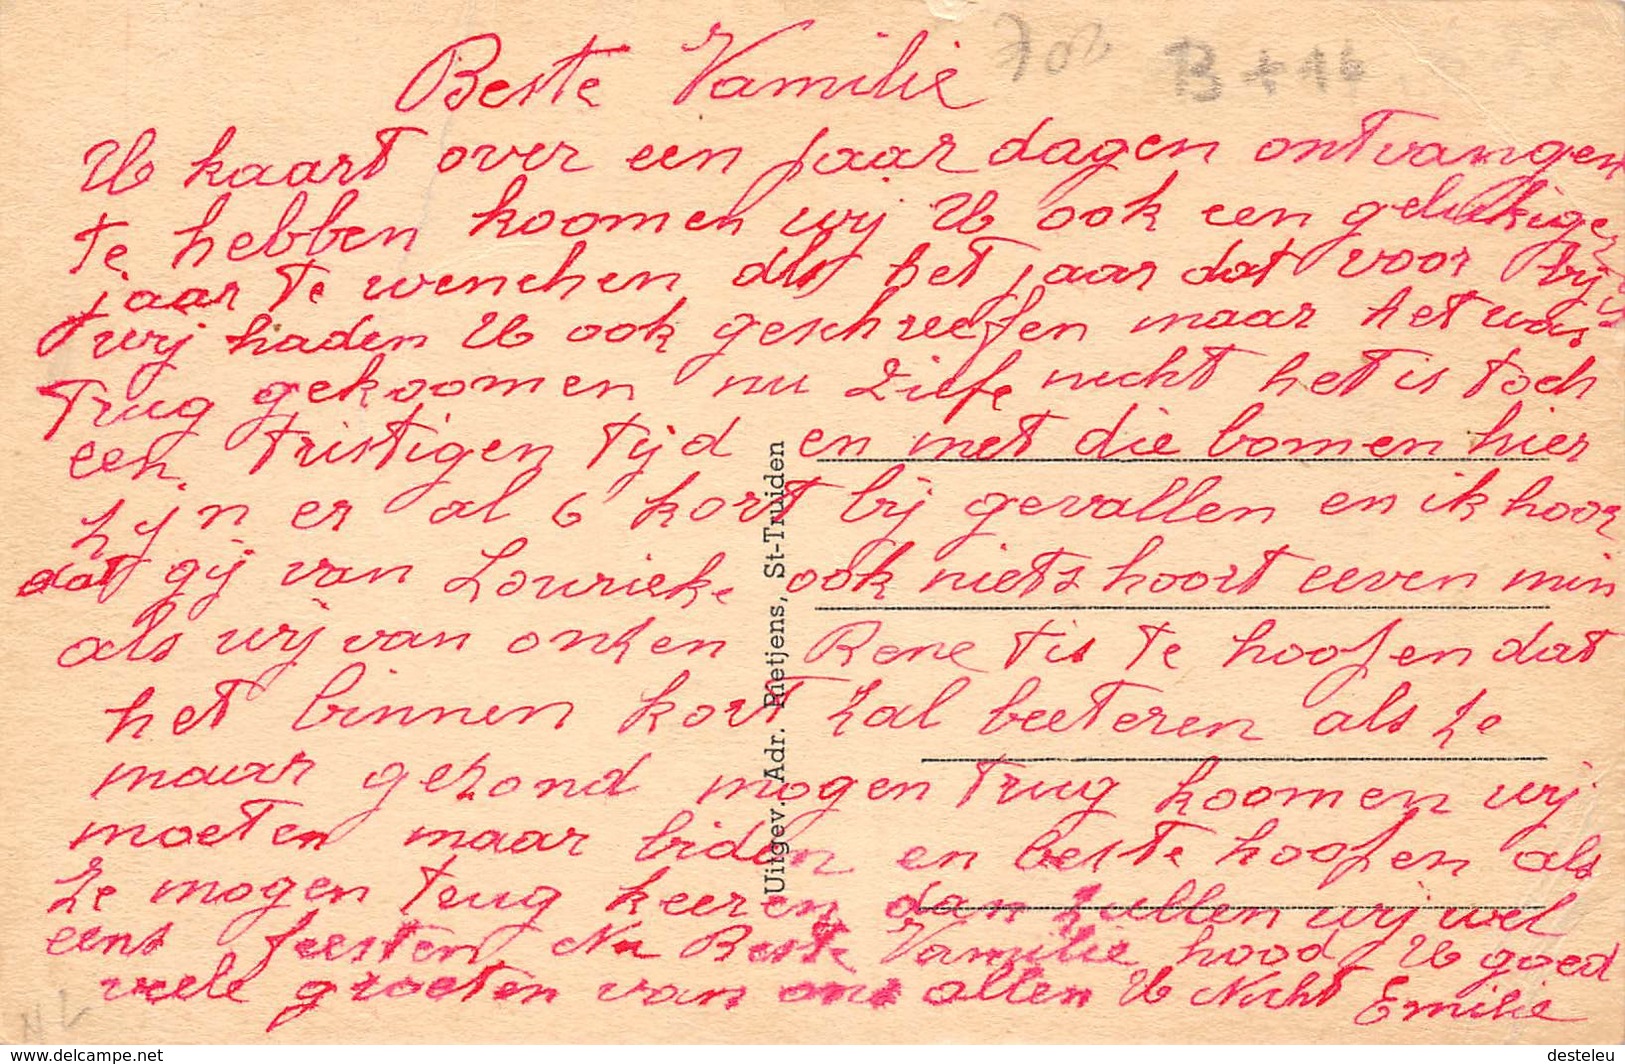 Beste Vamilie
B + 14
U kaart over een paar dagen ontvangen
te hebben koomen wij U ook een gelukkige
jaar te wenchen dus het jaar dat voor bij
wij haden U ook geschreefen maar het was
trug gekoomen nu Ziefe nicht het is toch
een tristigen tijd en met die bomen hier
zijn er al 6 kort bij gevallen en ik hoor
dat gij van Lourieke ook niets hoort eeven min
als wij van onzen Rene tis te hoofen dat
het binnen kort zal beeteren als ze
maar gezond mogen trug koomen wij
moeten maar biden en beste hoofen als
ze mogen teug keeren dan zullen wij wel
eens feesten. Nu Beste Vamilie houd U goed
veele groeten van ons allen U Nicht Emilie
Uitgev. Adr. Rietjens, St-Truiden
NL
www.delcampe.net
desteleu